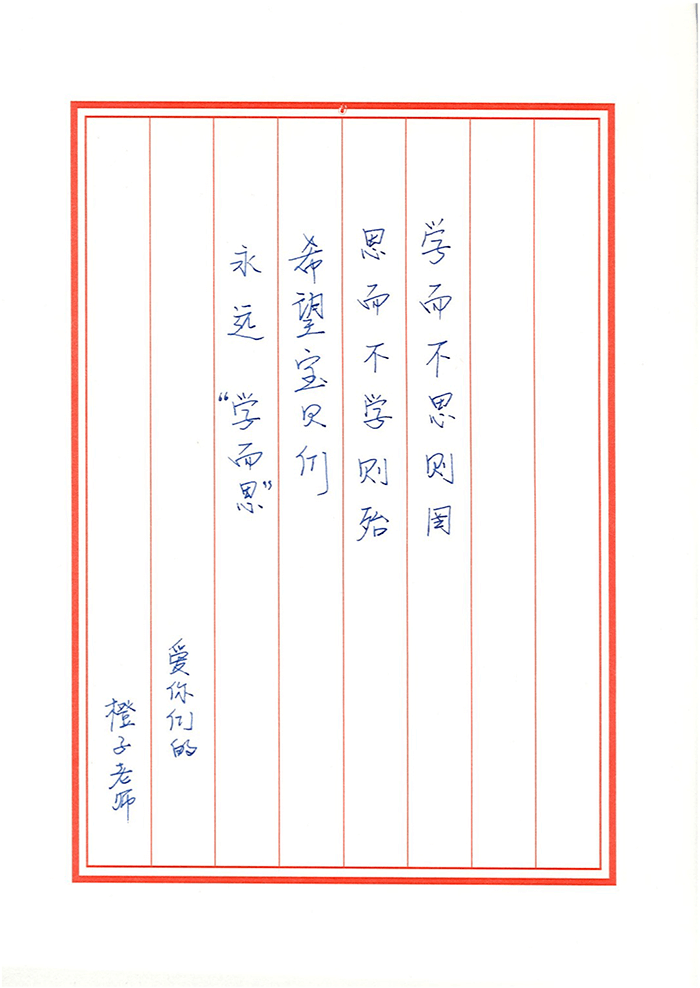 学而不思则罔
思而不学则殆
希望宝贝们
永远“学而思”
爱你们的
橙子老师